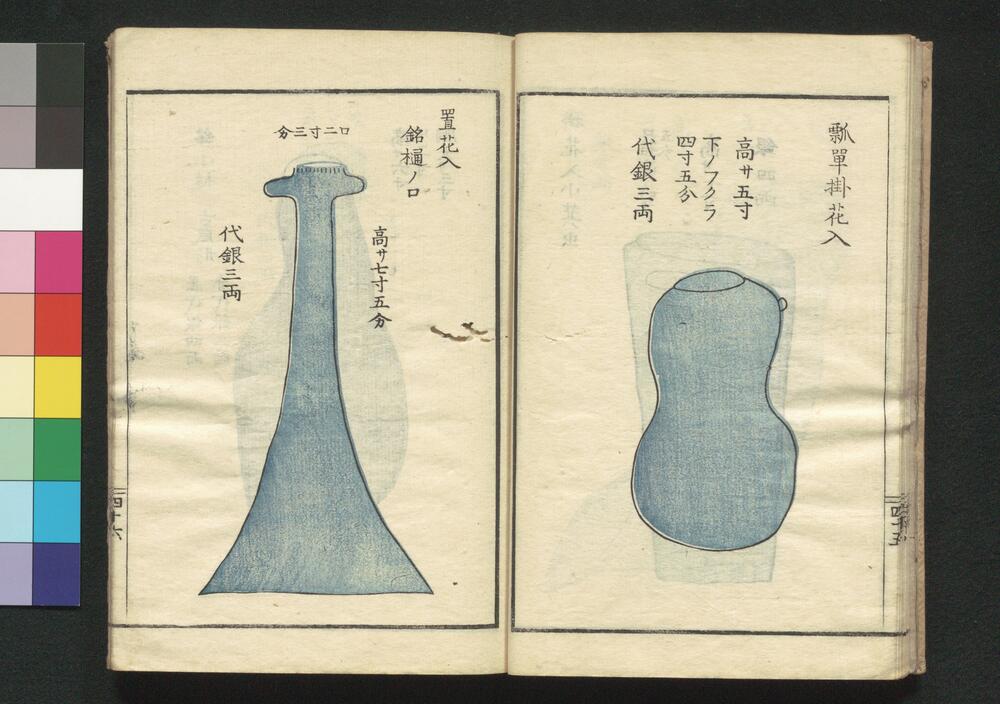 瓢單掛花入
高サ五寸
下ノフクラ
四寸五分
代銀三両
四十五
置花入
銘樋ノ口
口二寸三分
高サ七寸五分
代銀三両
四十六